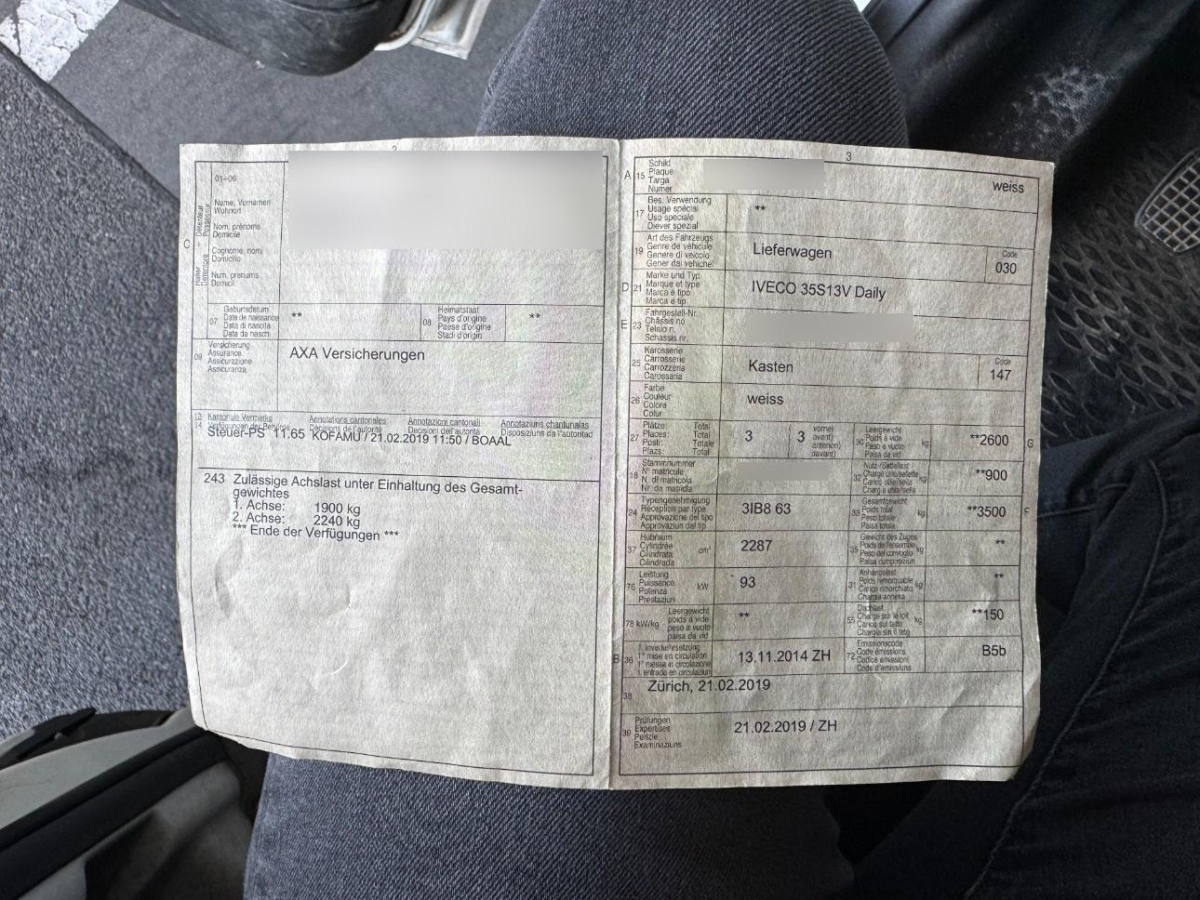 2
01-06
Name, Vornamen
Wohnort
Nom, prénoms
Domicile
Cognome, nomi
Domicilio
Num, prenums
Domicil
C
07
Geburtsdatum
Date de naissance
Data di nascita
Data da nasch.
**
08
Heimatstaat
Pays d'origine
Paese d'origine
Stadi d'origin
**
09
Versicherung
Assurance
Assicurazione
Assicuranza
AXA Versicherungen
13
14
Kantonale Vermerke
Annotations cantonales
Annotazioni cantonali
Annotaziuns chantunalas
Verfügungen der Behörde
Décisions de l'autorité
Decisioni dell'autorità
Disposiziuns da l'autoritad
Steuer-PS 11.65 KOFAMU / 21.02.2019 11:50 / BOAAL
243 Zulässige Achslast unter Einhaltung des Gesamt-
gewichtes
1. Achse: 1900 kg
2. Achse: 2240 kg
*** Ende der Verfügungen ***
3
A 15
Schild
Plaque
Targa
Numer
weiss
17
Bes. Verwendung
Usage spécial
Uso speciale
Diever spezial
**
19
Art des Fahrzeugs
Genre de véhicule
Genere di veicolo
Gener dal vehichel
Lieferwagen
Code
030
D 21
Marke und Typ
Marque et type
Marca e tipo
Marca e tip
IVECO 35S13V Daily
E 23
Fahrgestell-Nr.
Châssis no
Telaio n.
Schassis nr.
25
Karosserie
Carrosserie
Carrozzeria
Carossaria
Kasten
Code
147
26
Farbe
Couleur
Colore
Colur
weiss
27
Plätze: Total
Places: Total
Posti: Totale
Plazs: Total
3
3
vorne)
avant)
anteriori)
davant)
30
Leergewicht
Poids à vide
Peso a vuoto
Paisa da vid
kg
**2600
G
18
Stammnummer
N° matricule
N. di matricola
Nr. da matricla
32
Nutz-/Sattellast
kg
**900
24
Typengenehmigung
Réception par type
Approvazione del tipo
Approvaziun dal tip
3IB8 63
33
Gesamtgewicht
Poids total
Peso totale
Paisa totala
kg
**3500
F
37
Hubraum
Cylindrée
Cilindrata
Cilindrada
cm³
2287
35
Gewicht des Zuges
Poids de l'ensemble
Peso del convoglio
Paisa cumposiziun
kg
**
76
Leistung
Puissance
Potenza
Prestaziun
kW
93
31
Anhängelast
Poids remorquable
Carico rimorchiato
Chargia annexa
kg
**
78 kW/kg
Leergewicht
poids à vide
peso a vuoto
paisa da vid
**
55
Dachlast
Charge sur le toit
Carico sul tetto
Chargia sin il tetg
kg
**150
B 36
1. Inverkehrsetzung
1re mise en circulation
1a messa in circolazione
1. entrada en circulaziun
13.11.2014 ZH
72
Emissionscode
Code émissions
Codice emissioni
Code d'emissiuns
B5b
38
Zürich, 21.02.2019
39
Prüfungen
Expertises
Perizie
Examinaziuns
21.02.2019 / ZH